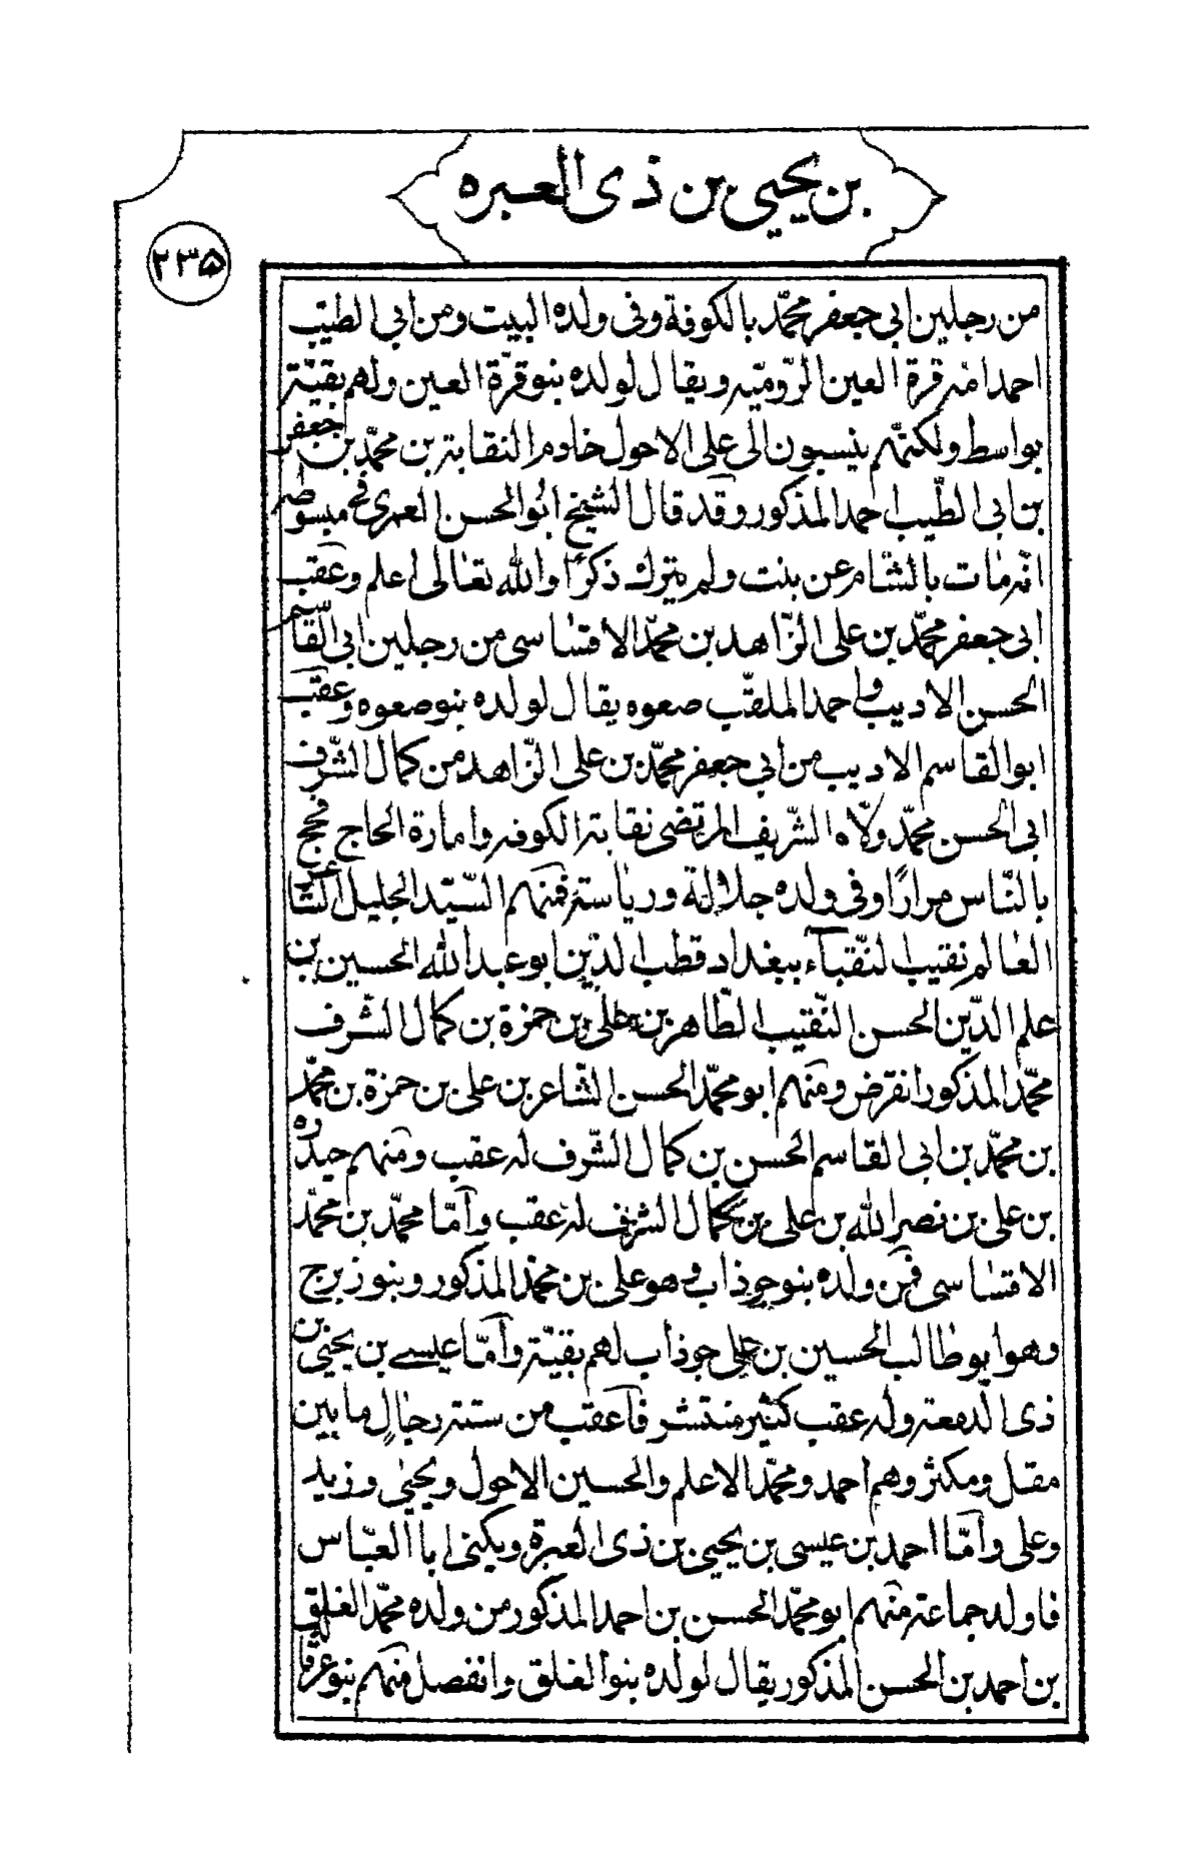 بن يحيى بن ذى العبره
٢٣۵
من رجلين ابى جعفر محمّد بالكوفة وفى ولده البيت ومن ابى الطيّب
احمد امّه قرة العين الرّوميّه ويقال لولده بنو قرّة العين ولهم بقيّة
بواسط ولكنّهم ينسبون الى على الاحول خادم النقابة بن محمّد بن جعفر
بن ابى الطّيب احمد المذكور وقد قال الشيخ ابو الحسن العمرى فى مبسوطه
انّه مات بالشام عن بنت ولم يترك ذكرًا والله تعالى اعلم وعقب
ابى جعفر محمّد بن على الزّاهد بن محمّد الاقساسى من رجلين ابى القاسم
الحسن الاديب واحمد الملقّب صعوه يقال لولده بنو صعوه وعقب
ابو القاسم الاديب من ابى جعفر محمّد بن على الزّاهد من كمال الشّرف
ابى الحسن محمّد ولّاه الشّريف المرتضى نقابة الكوفه وامارة الحاج فحج
بالنّاس مرارًا وفى ولده جلالة ورياسة فمنهم السّيّد الجليل الشّاعر
العالم نقيب النّقباء ببغداد قطب الدّين ابو عبد الله الحسين بن
علم الدّين الحسن النّقيب الطّاهر بن على بن حمزة بن كمال الشّرف
محمّد المذكور انقرض ومنهم ابو محمّد الحسن الشّاعر بن على بن حمزة بن محمّد
بن محمّد بن ابى القاسم الحسن بن كمال الشّرف له عقب ومنهم حيدره
بن على بن نصر الله بن على بن كمال الشرف له عقب وامّا محمّد بن محمّد
الاقساسى فمن ولده بنو جوذاب وهو على بن محمّد المذكور وبنو زبرج
وهو ابو طالب الحسين بن على جوذاب لهم بقيّة وامّا عيسى بن يحيى بن
ذى الدمعة وله عقب كثير منتشر فاعقب من ستة رجال ما بين
مقل ومكثر وهم احمد ومحمّد الاعلم والحسين الاحول ويحيى وزيد
وعلى وامّا احمد بن عيسى بن يحيى بن ذى العبرة ويكنى ابا العبّاس
فاولد جماعة منهم ابو محمّد الحسن بن احمد المذكور من ولده محمّد الغلق
بن احمد بن الحسن المذكور يقال لولده بنو الغلق وانفصل منهم بنو